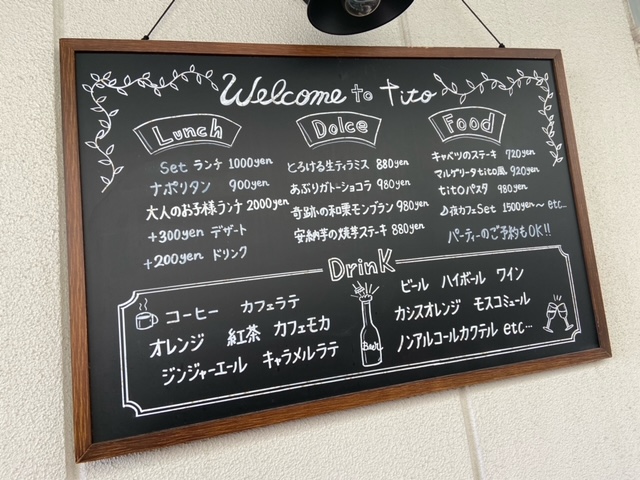 Welcome to tito
Lunch
Set ランチ 1000yen
ナポリタン 900yen
大人のお子様ランチ 2000yen
+300yen デザート
+200yen ドリンク
Dolce
とろける生ティラミス 880yen
あぶりガトーショコラ 980yen
奇跡の和栗モンブラン 980yen
安納芋の焼芋ステーキ 880yen
Food
キャベツのステーキ 720yen
マルゲリータtito風 920yen
titoパスタ 980yen
夜カフェSet 1500yen〜 etc...
パーティーのご予約もOK!!
Drink
コーヒー カフェラテ
オレンジ 紅茶 カフェモカ
ジンジャーエール キャラメルラテ
Beer
ビール ハイボール ワイン
カシスオレンジ モスコミュール
ノンアルコールカクテル etc...